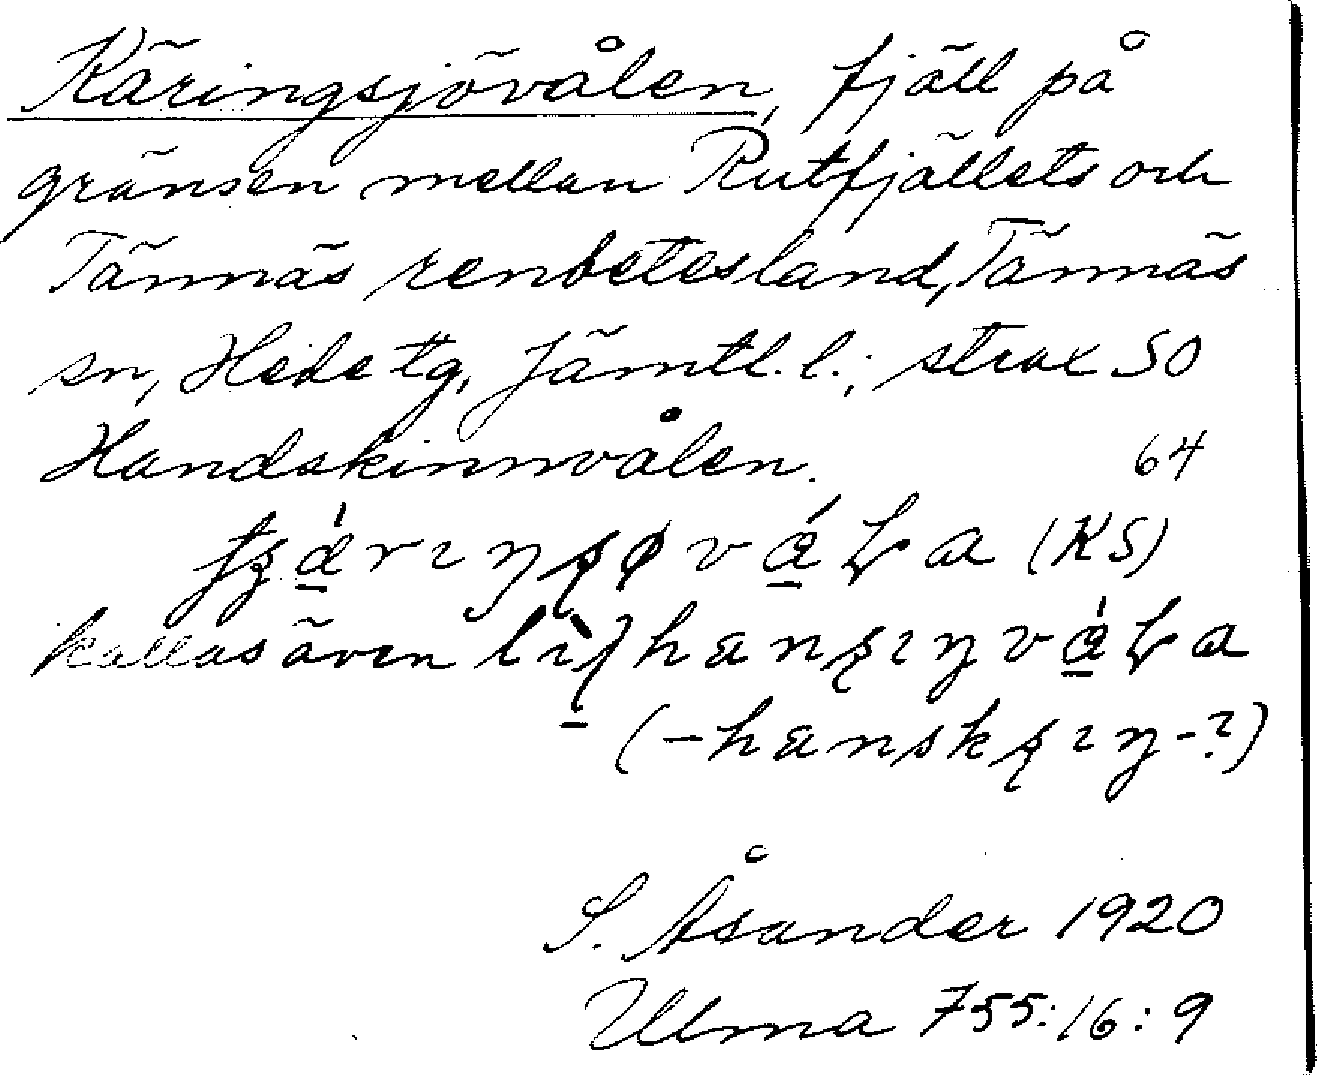 Käringsjövålen, fjäll på
gränsen mellan Rutfjällets och
Tännäs renbetesland, Tännäs
sn, Hede tg, Jämtl. l.; strax SO
Handskinnvålen. 64
(KS)
kallas även
S. Åsander 1920
Ulma 755:16:9